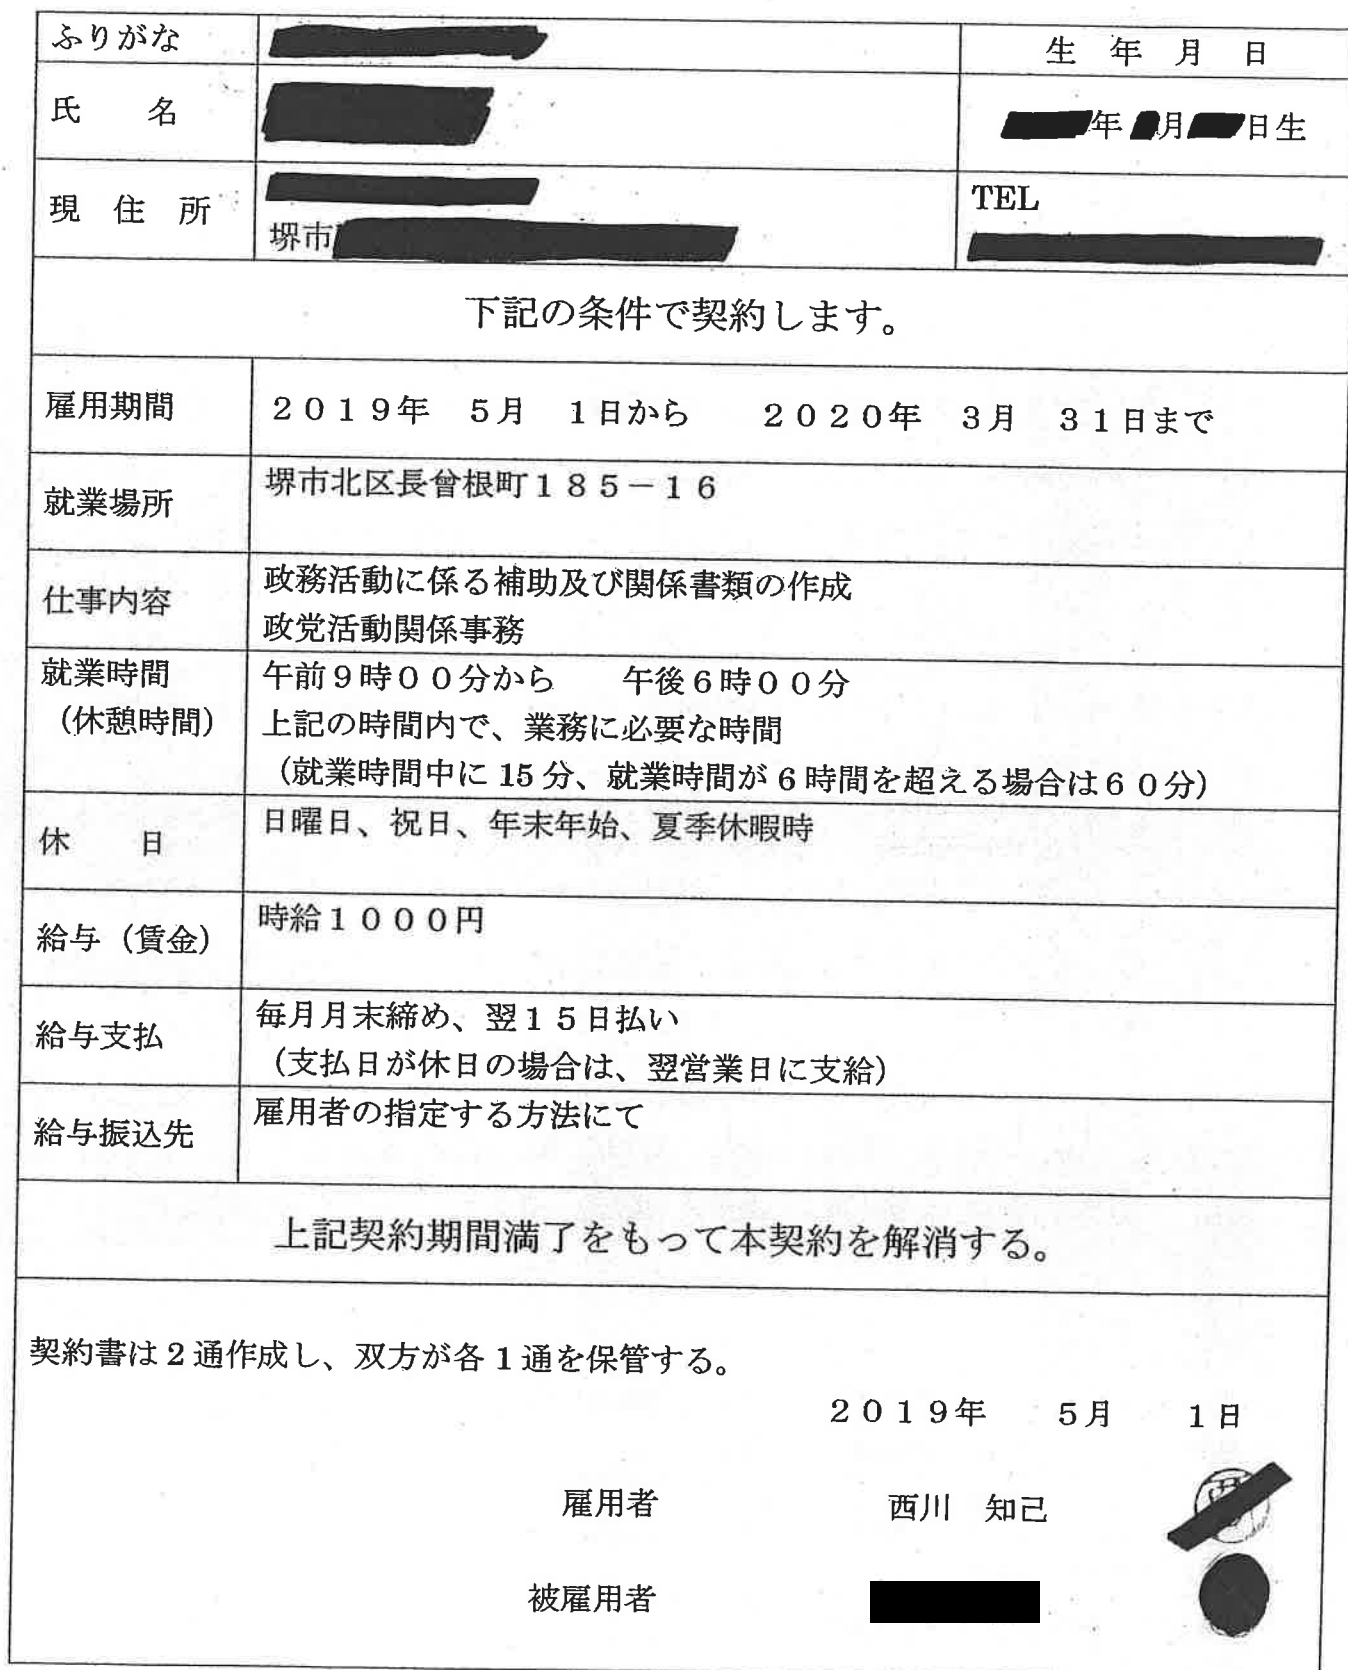 ふりがな
生 年 月 日
氏 名
年 月 日生
現 住 所
堺市
TEL
下記の条件で契約します。
雇用期間
2019年 5月 1日から 2020年 3月 31日まで
就業場所
堺市北区長曾根町185－16
仕事内容
政務活動に係る補助及び関係書類の作成
政党活動関係事務
就業時間
（休憩時間）
午前9時00分から 午後6時00分
上記の時間内で、業務に必要な時間
（就業時間中に15分、就業時間が6時間を超える場合は60分）
休 日
日曜日、祝日、年末年始、夏季休暇時
給与（賃金）
時給1000円
給与支払
毎月月末締め、翌15日払い
（支払日が休日の場合は、翌営業日に支給）
給与振込先
雇用者の指定する方法にて
上記契約期間満了をもって本契約を解消する。
契約書は2通作成し、双方が各1通を保管する。
2019年 5月 1日
雇用者 西川 知己
被雇用者